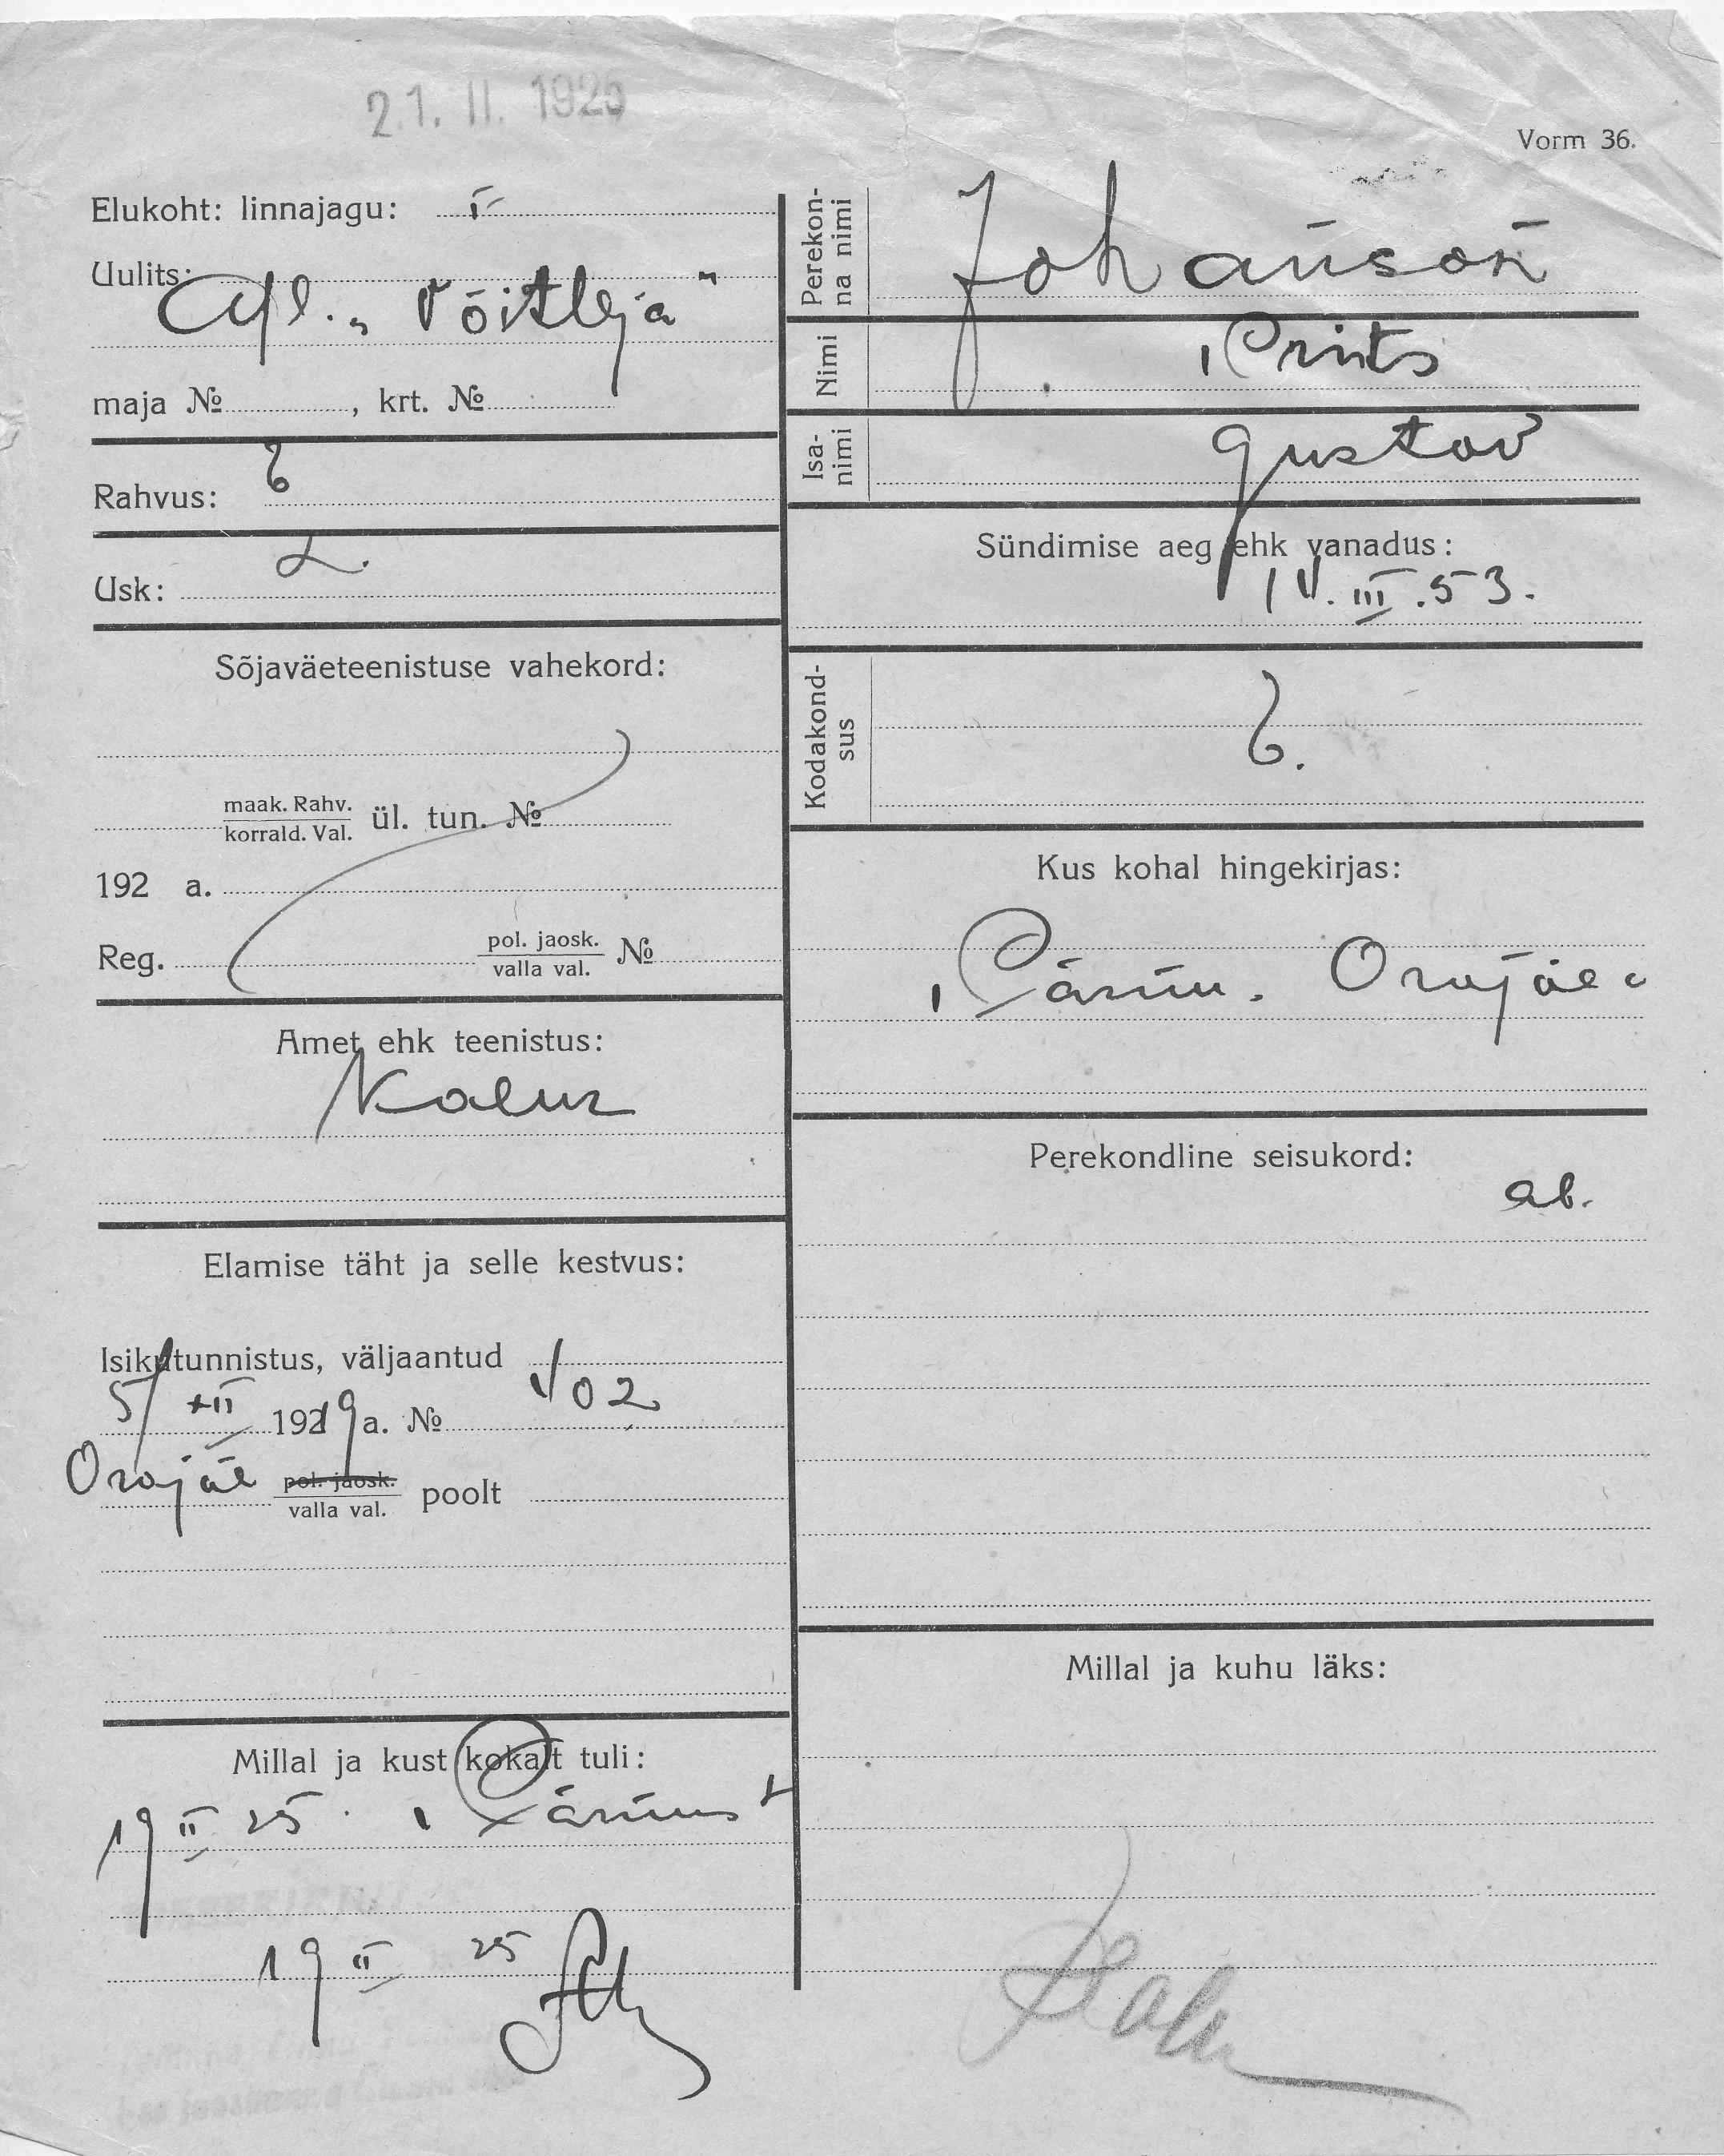 21. II. 1925
Vorm 36.
Elukoht: linnajagu: I
Uulits:
„Võitleja"
maja №, krt. №
Rahvus: E
Usk: L.
Sõjaväeteenistuse vahekord:
maak. Rahv.
korrald. Val. ül. tun. №
192 a.
Reg. pol. jaosk.
valla val. №
Amet ehk teenistus:
Kalur
Elamise täht ja selle kestvus:
Isikutunnistus, väljaantud
5/XII 1919 a. № 102
Orajõe pol. jaosk.
valla val. poolt
Millal ja kust kohalt tuli:
19 II 25. Pärnust
19 II 25
Perekonna nimi Johanson
Nimi Prits
Isanimi Gustav
Sündimise aeg ehk vanadus:
III.53.
Kodakondsus E.
Kus kohal hingekirjas:
Pärnu. Orajõe
Perekondline seisukord:
ab.
Millal ja kuhu läks: